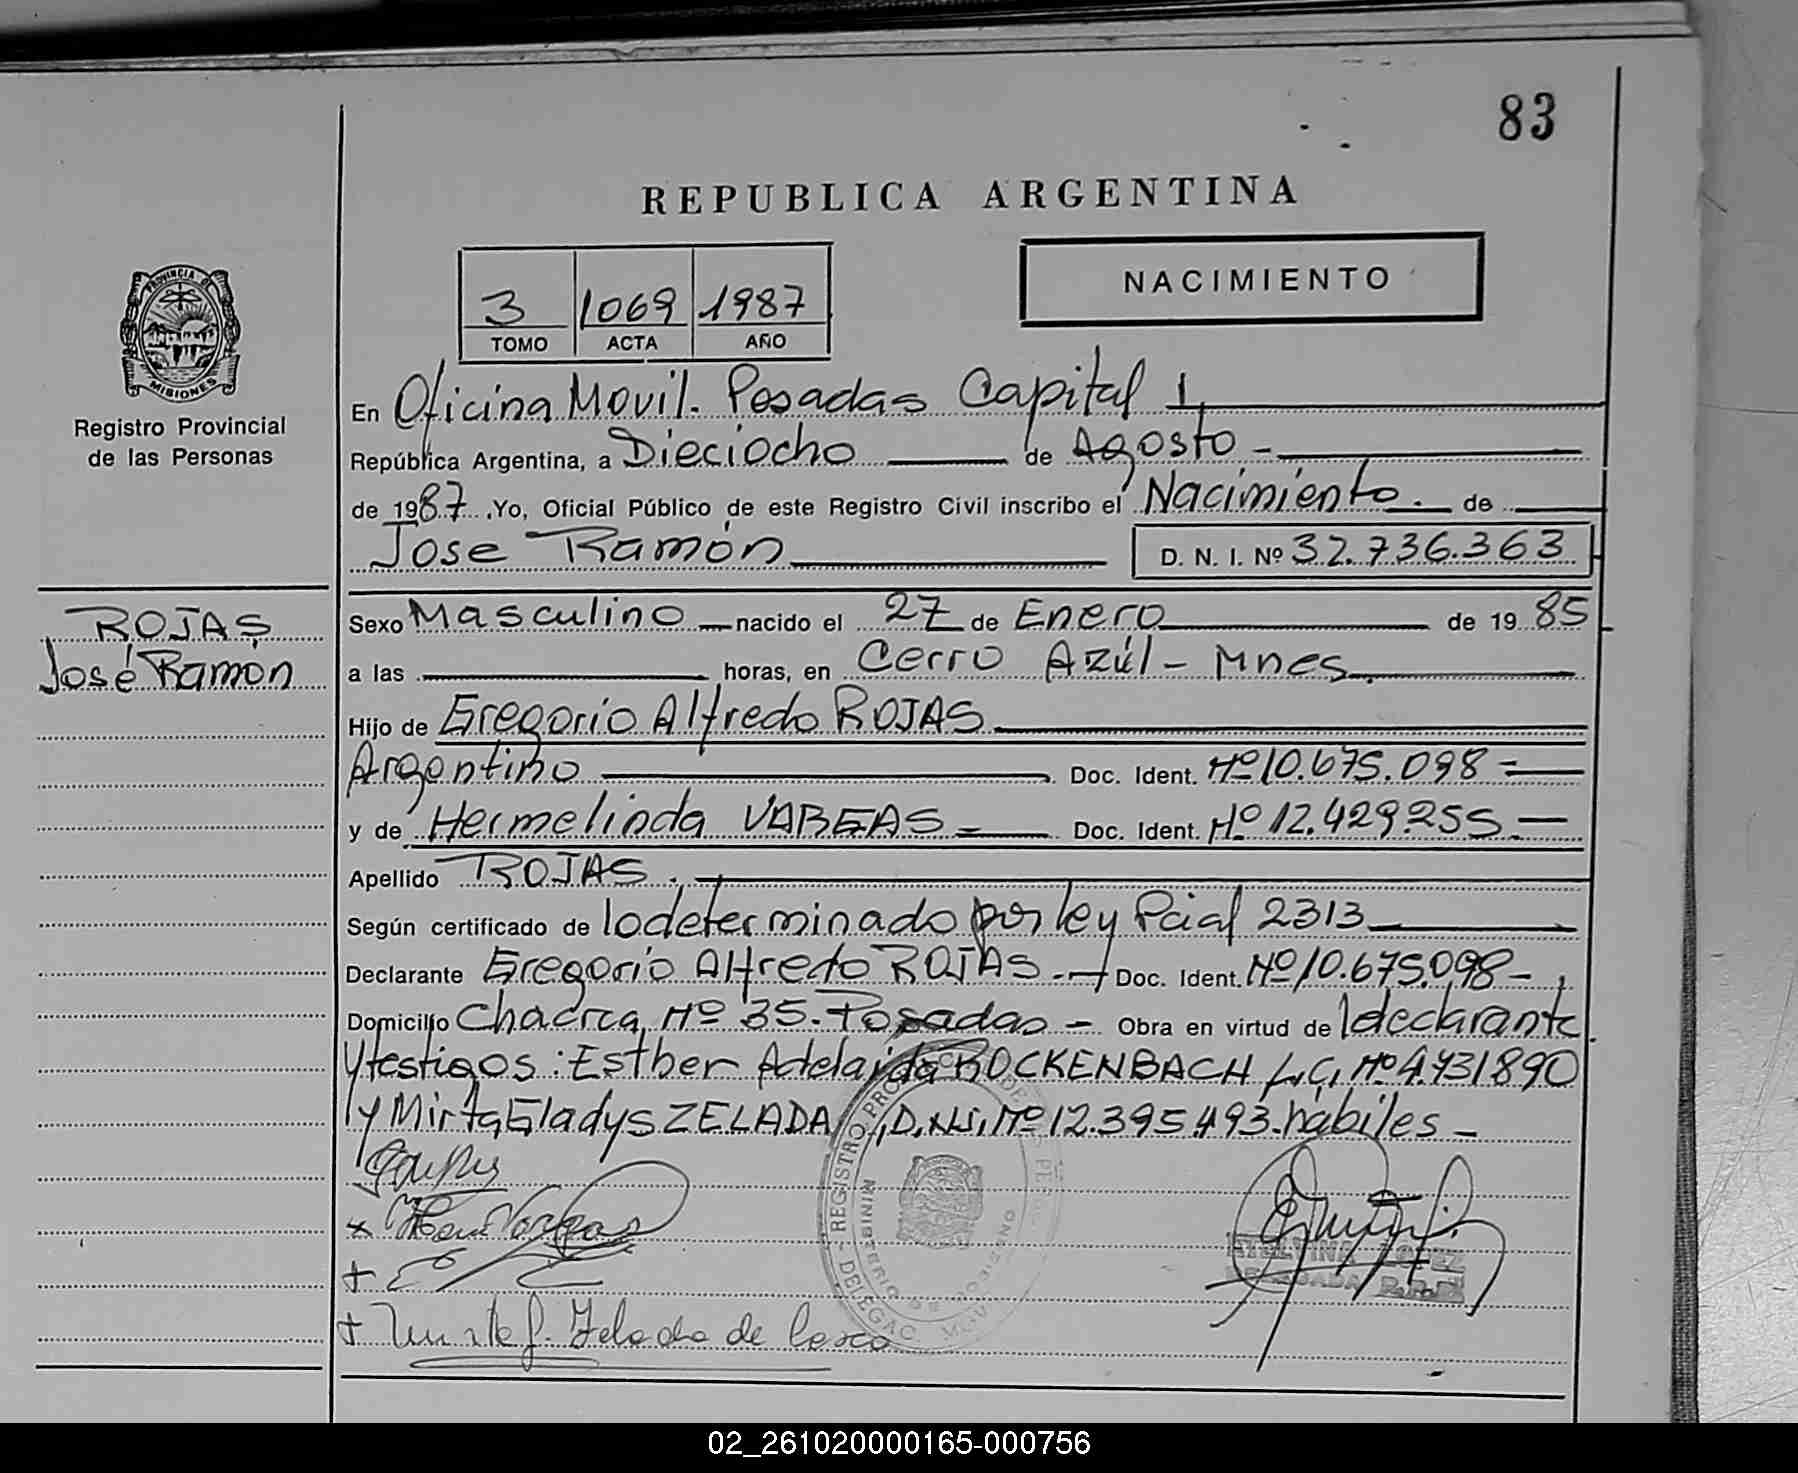 83
REPUBLICA ARGENTINA
NACIMIENTO
3 1069 1987
TOMO ACTA AÑO
PROVINCIA DE
MISIONES
Registro Provincial
de las Personas
ROJAS
José Ramón
En Oficina Movil. Posadas Capital
República Argentina, a Dieciocho de Agosto -
de 1987. Yo, Oficial Público de este Registro Civil inscribo el Nacimiento. de
Jose Ramón D. N. I. Nº 32.736.363
Sexo Masculino nacido el 27 de Enero de 1985
a las horas, en Cerro Azúl - Mnes.
Hijo de Gregorio Alfredo ROJAS
Argentino Doc. Ident. Nº 10.675.098 =
y de Hermelinda VARGAS = Doc. Ident. Nº 12.429.255.-
Apellido ROJAS.
Según certificado de lo determinado por ley Pcial 2313
Declarante Gregorio Alfredo ROJAS.- Doc. Ident. Nº 10.675.098 -
Domicilio Chacra Nº 35.- Posadas - Obra en virtud de declarante
y testigos: Esther Adelaida BOCKENBACH L.C. Nº 4.431890
y Mirta Gladys ZELADA, D.N.I. Nº 12.395.493. hábiles -
Zelada de
REGISTRO
DELEGAC. MOVIL
MINISTERIO DE GOBIERNO
ETELVINA LOPEZ
DELEGADA
02_261020000165-000756